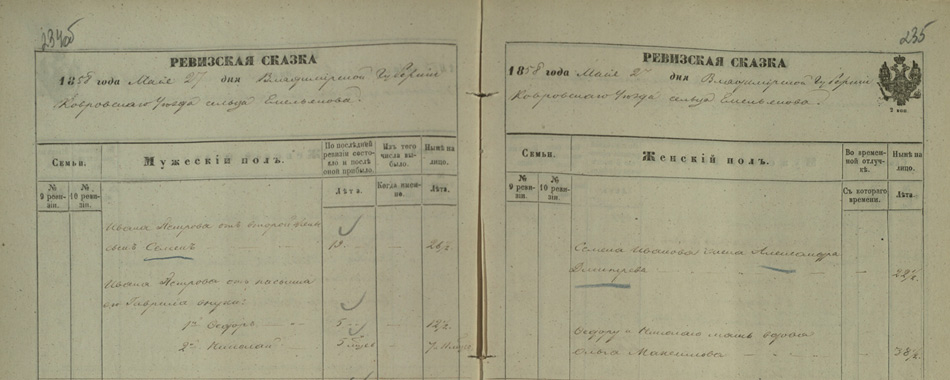 234об
РЕВИЗСКАЯ СКАЗКА
1858 года Мая 27 дня Владимирской Губернии
Ковровскаго Уезда сельца Емельянова.
Семьи.
Мужескій полъ.
По последней ревизіи состояло и после оной прибыло.
Изъ того числа выбыло.
Ныне на лицо.
№ 9 ревизіи.
№ 10 ревизіи.
Лета.
Когда именно.
Лета.
Ивана Петрова отъ второй
сынъ Семенъ
Ивана Петрова отъ пасынка
Гаврила внуки:
1й Федоръ 5 12½
2й Николай
235
РЕВИЗСКАЯ СКАЗКА
1858 года Мая 27 дня Владимирской Губерніи
Ковровскаго Уезда сельца Емельянова.
Семьи.
Женскій полъ.
Во временной отлучке.
Ныне на лицо.
№ 9 ревизіи.
№ 10 ревизіи.
Съ котораго времени.
Лета.
Семена Иванова жена Александра
Дмитрева 22½
Федору и Николаю мать вдова
Ольга Максимова 38½